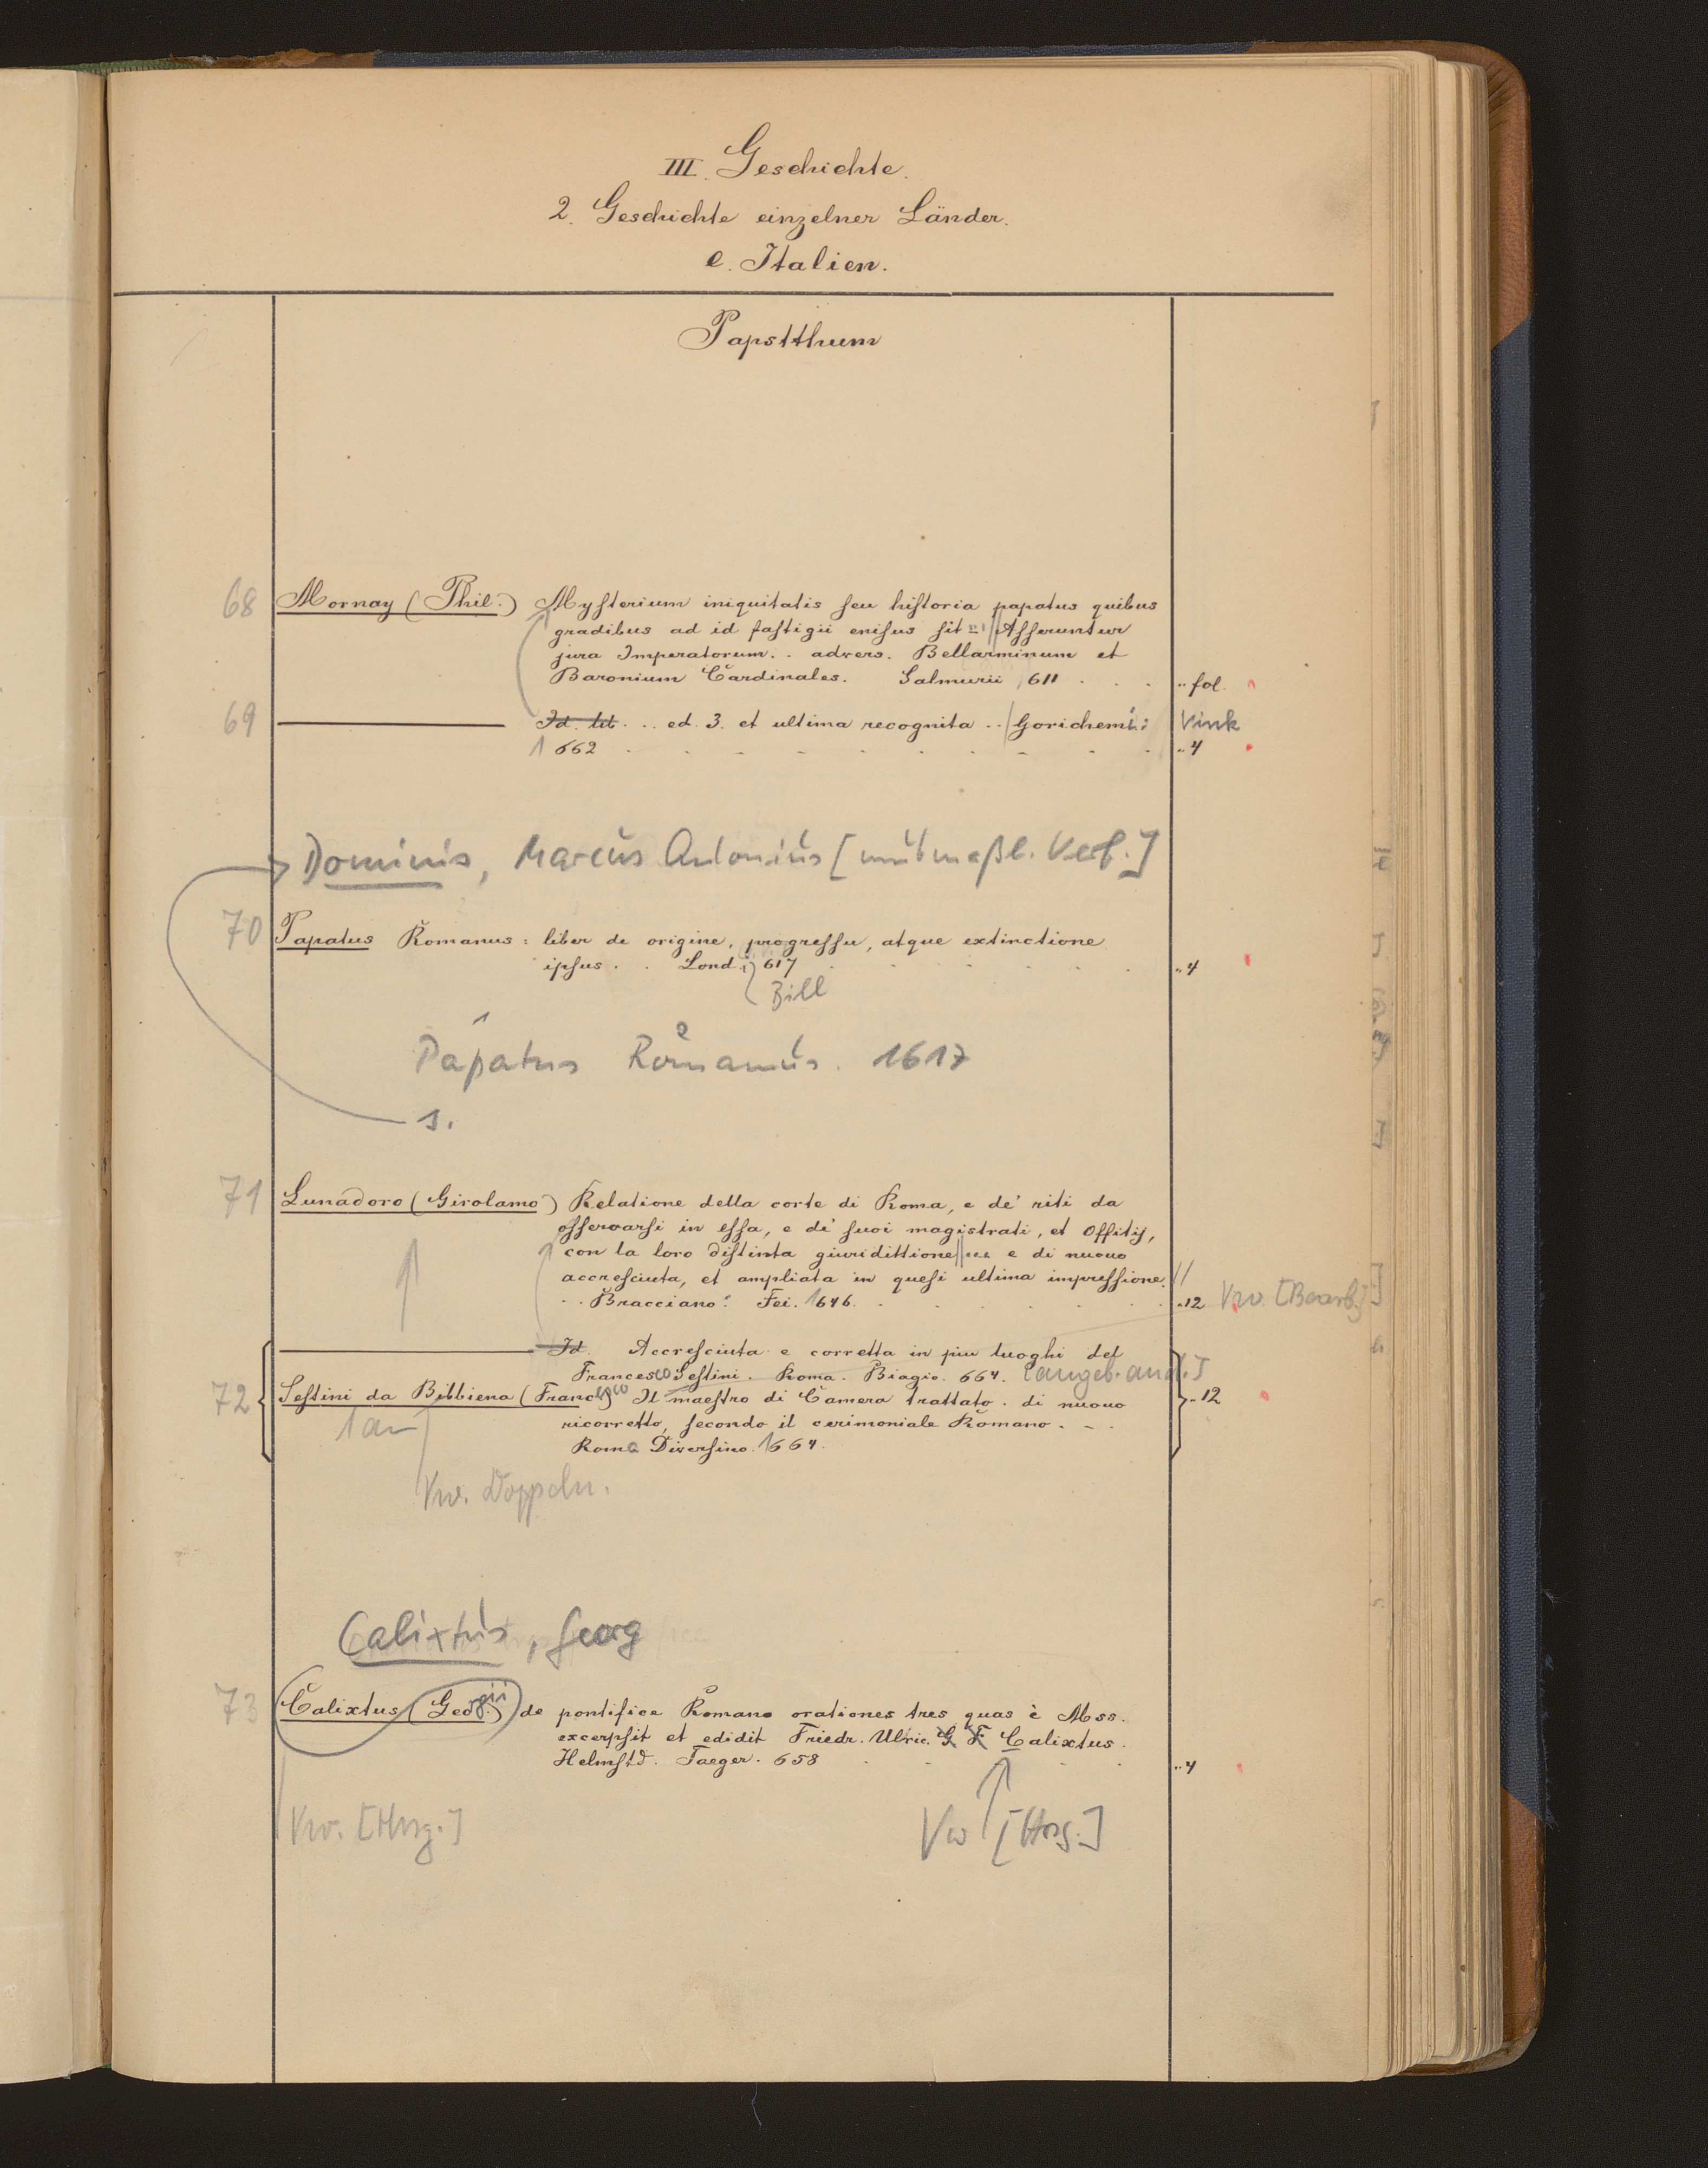 III. Geschichte.
2. Geschichte einzelner Länder.
e. Italien.
Papstthum
68 Mornay (Phil.) Mysterium iniquitatis seu historia papatus quibus
gradibus ad id fastigii enisus sit // Asseruntur
jura Imperatorum . . advers. Bellarminum et
Baronium Cardinales. Salmurii 611 . . . . . fol.
69 ——— Id. tit. . .. ed. 3. et ultima recognita . . Gorichemi: Vink
1662 . . 4
Dominis, Marcus Antonius [mutmaßl. Verf.]
70 Papatus Romanus : liber de origine, progressu, atque extinctione
ipsus . . Lond. 617 . . 4
Bill
Papatus Romanus. 1617
s.
71 Lunadoro (Girolamo) Relatione della corte di Roma, e de' riti da
osservarsi in essa, e de' suoi magistrati, et offitij,
con la loro distinta giuridittione // e di nuovo
accresciuta, et ampliata in quesi ultima impressione. //
. . Bracciano: Fei. 1646. . . 12 Vw. [Bearb.]
——— Id. Accresciuta e corretta in piu luoghi del
Francesco Sestini. Roma. Biagio. 664. [angeb. an d.]
72 Sestini da Bibbiena (Francesco) Il maestro di Camera trattato . di nuovo . 12
1 an
ricorretto, secondo il cerimoniale Romano . - .
Roma Diversino. 1664.
Vw. Doppeln.
Calixtus, Georg
73 Calixtus (Georgii) de pontifice Romano orationes tres quas è Mss.
excerpsit et edidit Friedr. Ulric. G. F. Calixtus.
Helmstd. Taeger. 658 . . 4
Vw. [Hrsg.] Vw [Hrsg.]